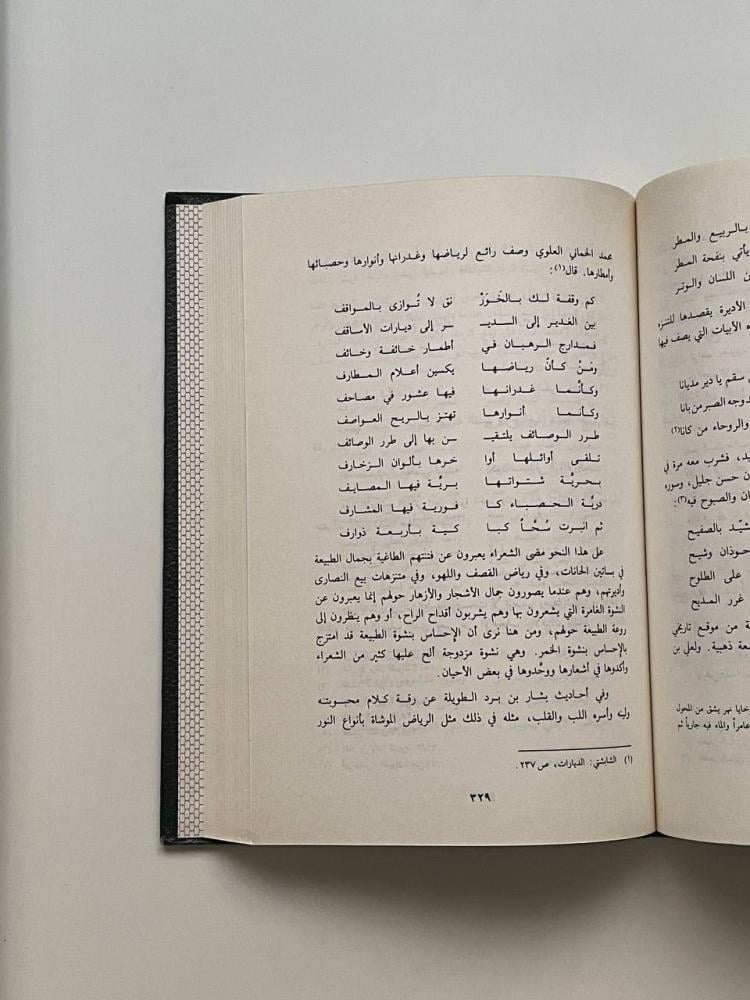 بالربيع والمطر
يأتي بنفحة المطر
ن اللسان والوتر
الأديرة يقصدها للتنزه
ه الأبيات التي يصف فيها
ي سقم يا دير مديانا
وجه الصبر من بانا
والروحاء من كانا(٢)
يد، فشرب معه مرة في
ن حسن جليل، وسوره
ان والصبوح فيه(٣):
شيّد بالصفيح
حوذان وشيح
على الطلوح
غرر المديح
ة من موقع تاريخي
عة ذهبية. ولعلي بن
خايا نهر يشق من المحول
عامراً والماء فيه جارياً ثم
محمد الحماني العلوي وصف رائع لرياضها وغدرانها وأنوارها وحصبائها
وأمطارها. قال(١):
كم وقفة لك بالخَوَرْ نق لا تُوازى بالمواقف
بين الغدير إلى السديـ ـر إلى ديارات الأساقف
فمدارج الرهبان في أطمار خائفة وخائف
ومَنْ كانّ رياضـهـا يكسين أعلام المطارف
وكأنّما غدرانـها فيها عشور في مصاحف
وكأنما أنوارها تهتز بالريح العواصف
طرر الوصائف يلتقيـ ـن بها إلى طرر الوصائف
تلقى أوائلها أوا خرها بألوان الزخارف
بحريّة شتواتها بريّة فيها المصايف
دريّة الحصباء كا فورية فيها المشارف
ثم انبرت سُحّاً كبا كية بأربعة ذوارف
على هذا النحو مضى الشعراء يعبرون عن فتنتهم الطاغية بجمال الطبيعة
في بساتين الحانات، وفي رياض القصف واللهو، وفي متنزهات بيع النصارى
وأديرتهم، وهم عندما يصورون جمال الأشجار والأزهار حولهم إنما يعبرون عن
النشوة الغامرة التي يشعرون بها وهم يشربون أقداح الراح، أو وهم ينظرون إلى
روعة الطبيعة حولهم، ومن هنا نرى أن الإحساس بنشوة الطبيعة قد امتزج
بالإحساس بنشوة الخمر. وهي نشوة مزدوجة ألح عليها كثير من الشعراء
وأكدوها في أشعارها ووحّدوها في بعض الأحيان.
وفي أحاديث بشار بن برد الطويلة عن رقة كلام محبوبته
ولينه وأسره اللب والقلب، مثله في ذلك مثل الرياض الموشاة بأنواع النور
(١) الشابشتي: الديارات، ص ٢٣٧.
٣٢٩